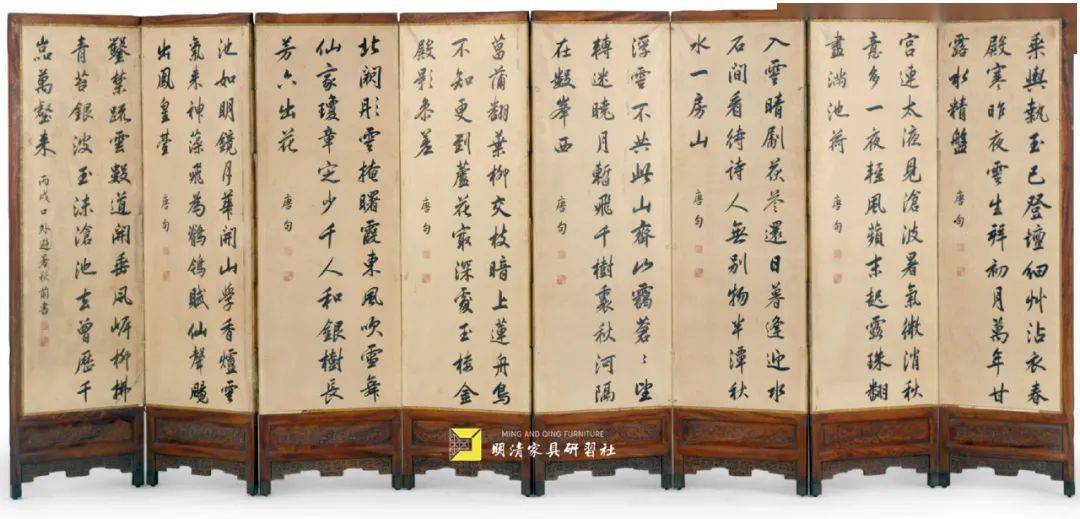 乘輿執玉已登壇細艸沾衣春
殿寒昨夜雲生拜初月萬年甘
露水精盤
唐句
宮連太液見滄波暑氣微消秋
意多一夜輕風蘋末起露珠翻
盡滿池荷
唐句
入雲晴劚茯苓還日暮逢迎水
石間看待詩人無別物半潭秋
水一房山
唐句
浮雲不共此山齊山靄蒼〻望
轉迷曉月暫飛千樹裏秋河隔
在數峯西
唐句
菖蒲翻葉柳交枝暗上蓮舟鳥
不知更到蘆花最深處玉樓金
殿影參差
唐句
北闕彤雲掩曙霞東風吹雪舞
仙家瓊章定少千人和銀樹長
芳六出花
唐句
池如明鏡月華開山學香爐雲
氣來神藻飛為鶺鴒賦仙聲颺
出鳳皇臺
唐句
鑿禁疏雲數道開垂風岸柳拂
青苔銀波玉沫滄池去曾歷千
嵒萬壑來
丙戌口外避暑秋前書
MING AND QING FURNITURE
明清家具研習社